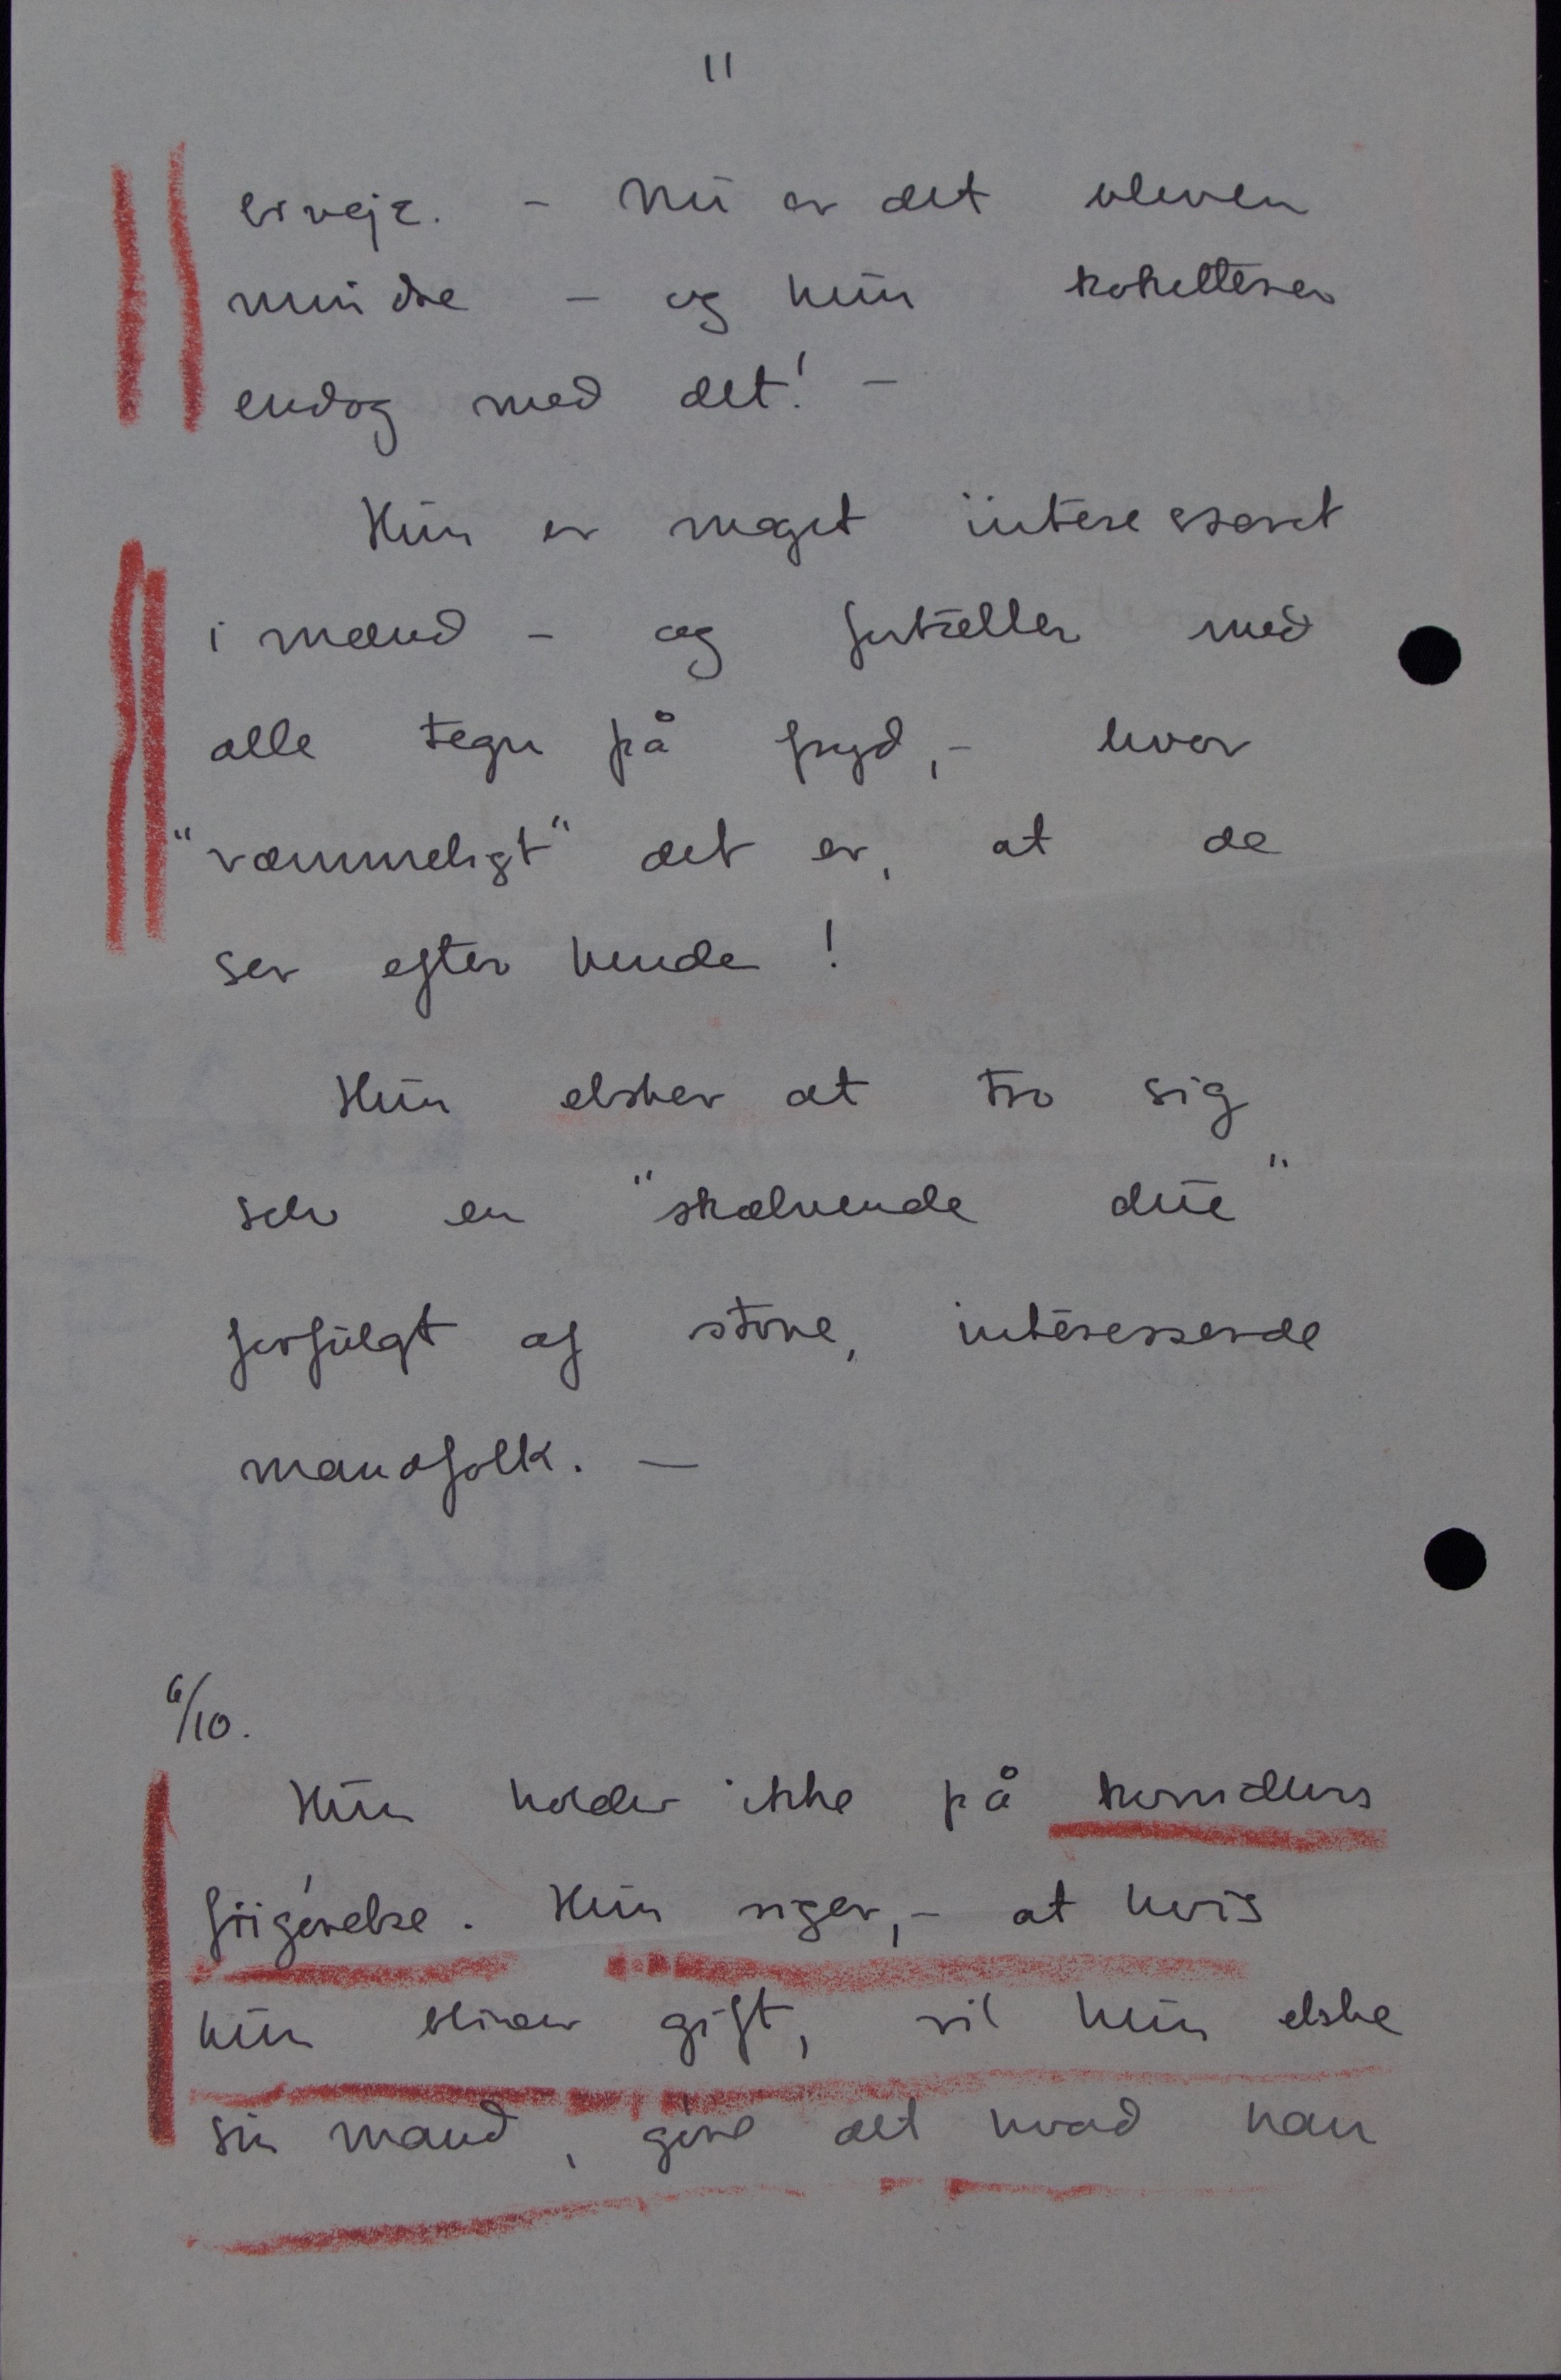 11
er væk. – Nu er det bleven
mindre – og hun koketterer
endog med det! –
Hun er meget interesseret
i mænd – og fortæller med
alle tegn på fryd, – hvor
"væmmeligt" det er, at de
ser efter hende!
Hun elsker at tro sig
selv en "skælmende due"
forfulgt af store, interesserede
mandfolk. –
6/10.
Hun holder ikke på kvindens
frigørelse. Hun siger, – at hvis
hun bliver gift, vil hun elske
sin mand, gøre det hvad han